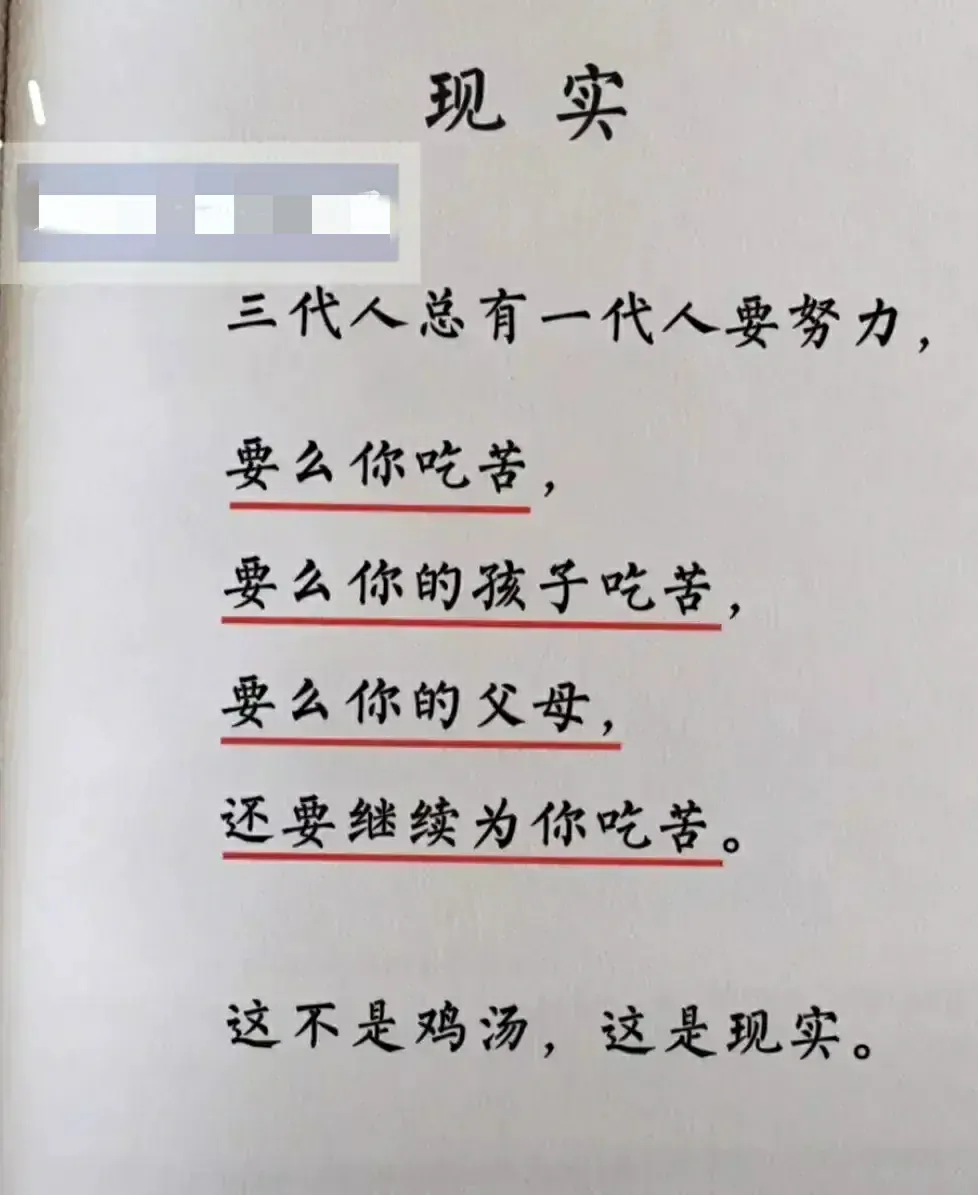 现实
三代人总有一代人要努力，
要么你吃苦，
要么你的孩子吃苦，
要么你的父母，
还要继续为你吃苦。
这不是鸡汤，这是现实。